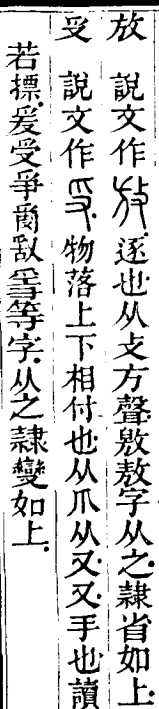 放 說文作𢼸逐也从攴方聲敫敖字从之隷省如上
𠬪 說文作𠬪物落上下相付也从爪从又又手也讀
若摽爰受爭𤔔𠭖𠭥等字从之隷變如上